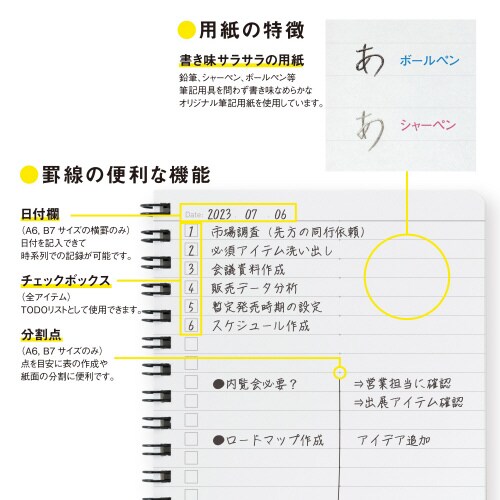 ●用紙の特徴
書き味サラサラの用紙
鉛筆、シャーペン、ボールペン等
筆記用具を問わず書き味なめらかな
オリジナル筆記用紙を使用しています。
あ ボールペン
あ シャーペン
●罫線の便利な機能
日付欄
（A6、B7サイズの横罫のみ）
日付を記入できて
時系列での記録が可能です。
チェックボックス
（全アイテム）
TODOリストとして使用できます。
分割点
（A6、B7サイズのみ）
点を目安に表の作成や
紙面の分割に便利です。
Date 2023 07 06
1 市場調査（先方の同行依頼）
2 必須アイテム洗い出し
3 会議資料作成
4 販売データ分析
5 暫定発売時期の設定
6 スケジュール作成
●内覧会必要？ ⇒営業担当に確認
⇒出展アイテム確認
●ロードマップ作成 アイデア追加